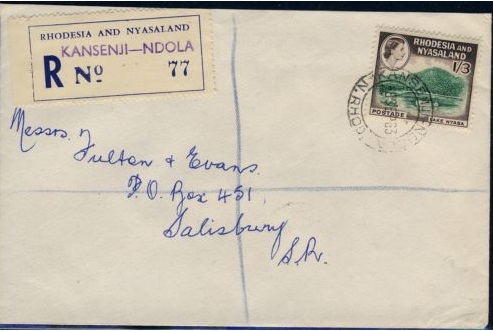 RHODESIA AND NYASALAND
KANSENJI—NDOLA
R No 77
RHODESIA AND
NYASALAND
1/3
POSTAGE
LAKE NYASA
Messrs.
Fulton & Evans.
P.O. Box 451,
Salisbury
S.R.